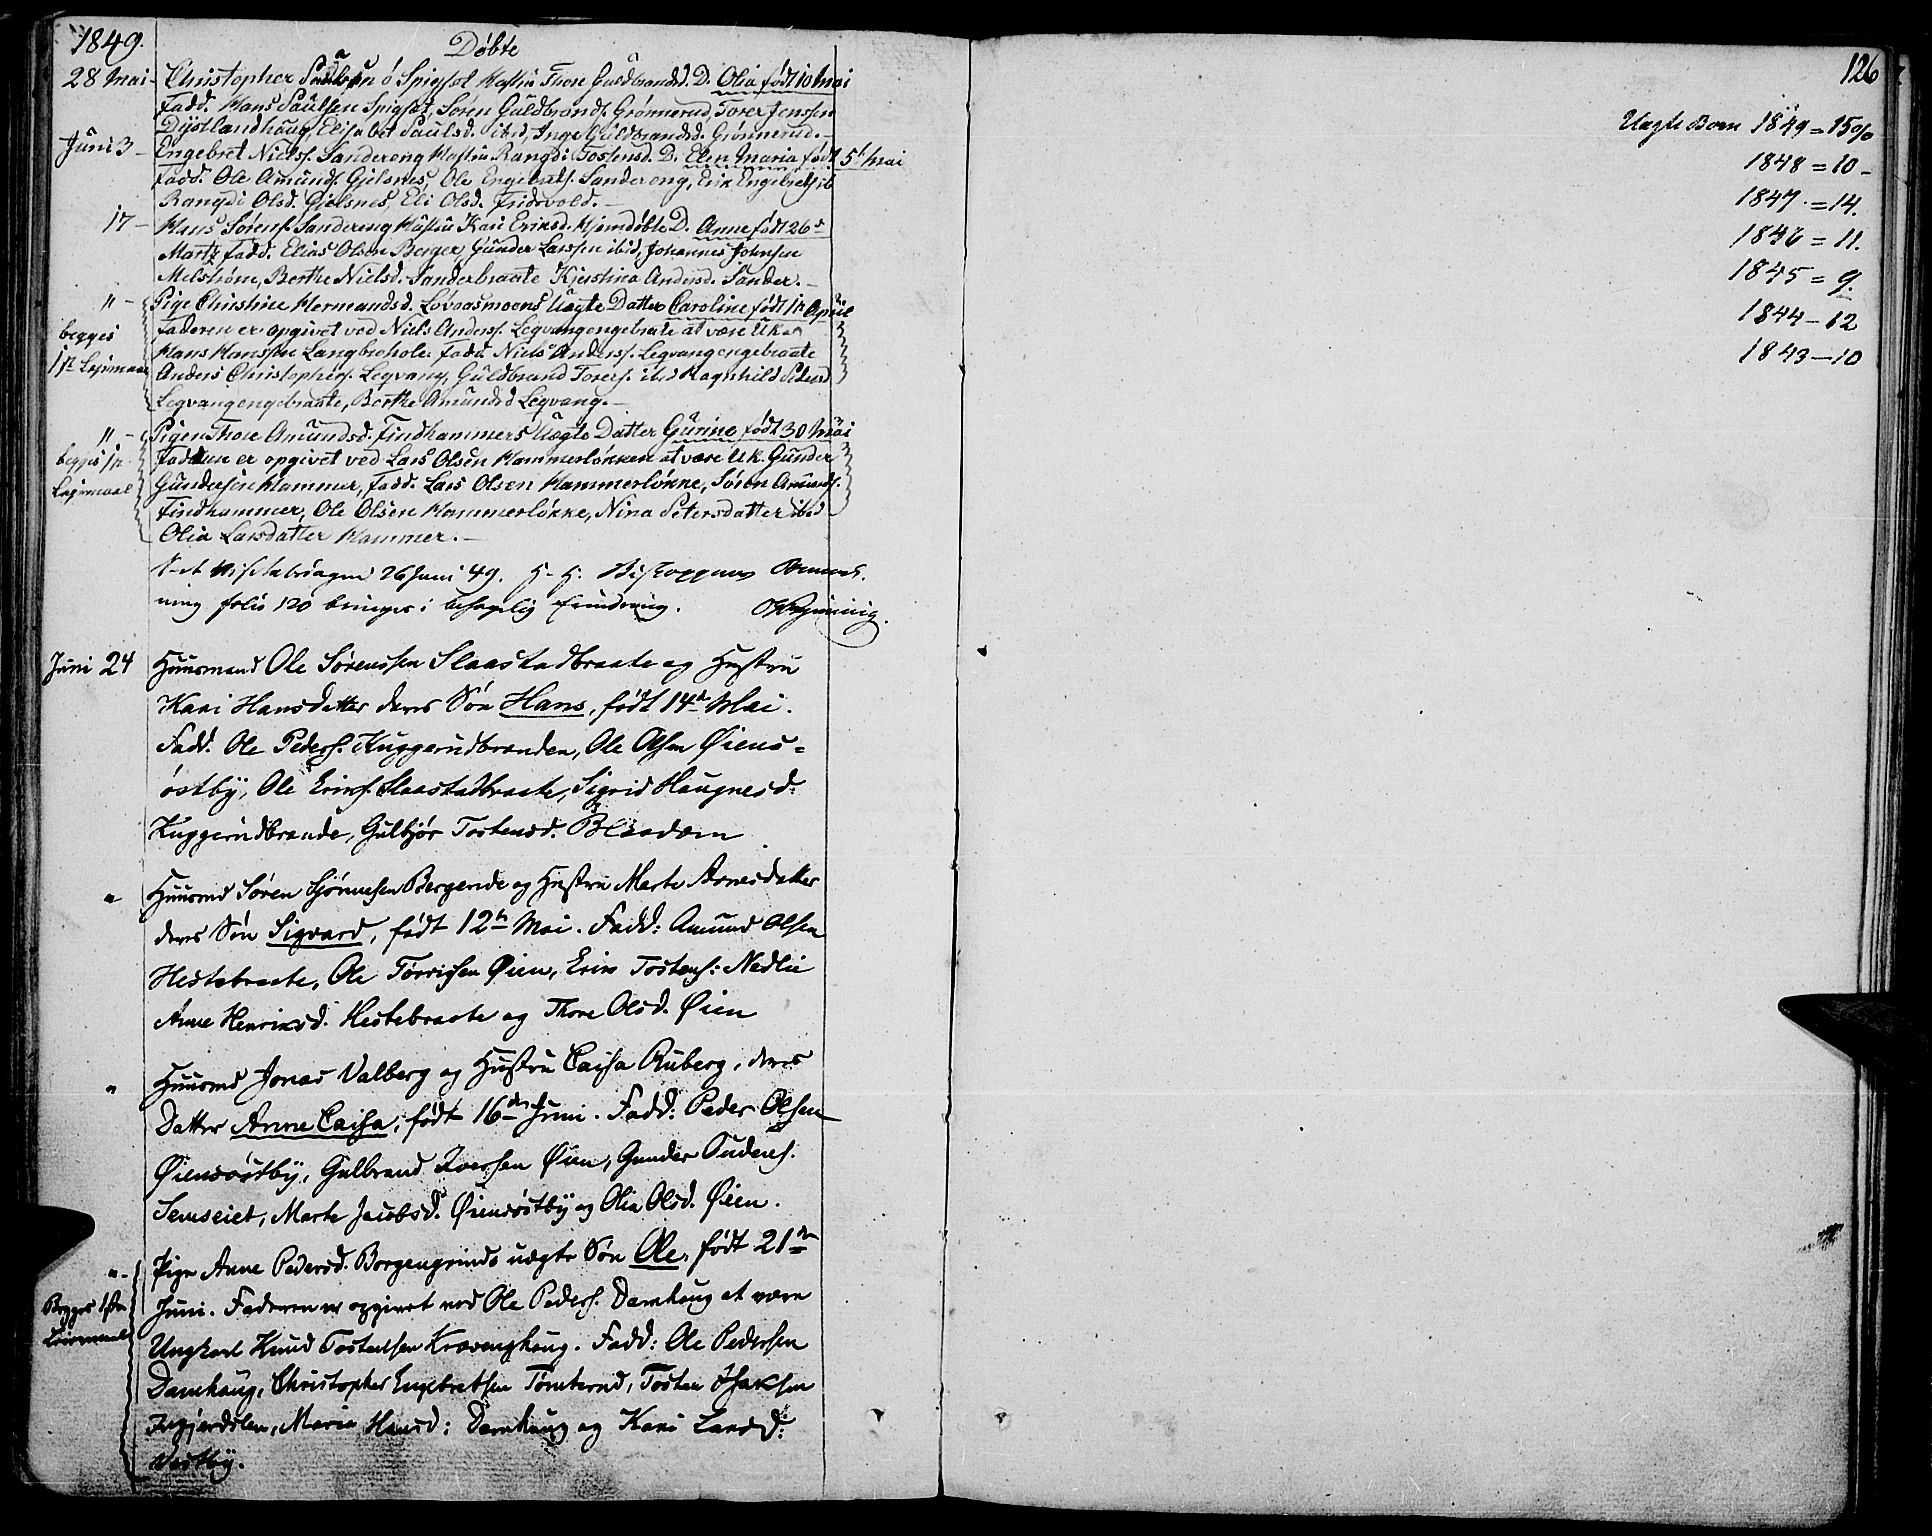 1849.
Døbte
28 Mai - Christopher Paulsen ö Spigset Hustru Thore Guldbrandsd. D. Olia født 10 Mai
Fadd. Hans Paulsen Spigset, Søren Guldbrands. Grønnerud, Torer Jenssen
Dystlandhaug, Elisabet Paulsd. ibid, Inge Guldbrandsd. Grønnerud. -
Juni 3 - Engebret Niels. Sandereng Hustru Rangdi Tostensd. D. Elen Maria født 5t Mai
Fadd. Ole Amunds. Gjelsnes, Ole Engebrets. Sandereng, Erik Engebrets. ib
Rangdi Olsd. Gjelsnes, Eli Olsd. Fridsvold. -
17 - Hans Sørens. Sandereng Hustru Kari Eriksd. Hjemdøbte D. Anne født 26d
Marts Fadd. Elias Olsen Berger, Gunder Larssen ibid, Johannes Johnsen
Melstrøm, Berthe Nielsd. Sanderbraate Kjerstina Andersd. Sander. -
" - Pige Christine Hermandsd. Løvaasmoens Uægte Datter Caroline født 1n April
begges
1st Lejermaal
Faderen er opgivet ved Niels Anders. Legvangengebraate at være U.k.
Hans Hanssen Langbrohole. Fadd. Niels Anders. Legvangengebraate
Anders Christophers. Legvang, Guldbrand Torers. ibid Ragnhild Pedersd
Legvangengebraate, Berthe Amundsd Legvang. -
" - Pigen Thore Amundsd. Findhammers Uægte Datter Gurine født 30 Mai
begges 1n
Lejermaal
Faderen er opgivet ved Lars Olsen Hammerløkken at være U.k. Gunder
Gundersen Hammer, Fadd. Lars Olsen Hammerløkke, Søren Amunds.
Findhammer, Ole Olsen Hammerløkke, Nina Petersdatter ibid
Olia Larsdatter Hammer. -
26 Juni 49. H. H. Biskoppens
ning folio 120 bringes i behagelig Erindring.
Juni 24 Huusmand Ole Sørenssen Slaastadbraate og Hustru
Kari Hansdatter deres Søn Hans, født 14de Mai.
Fadd. Ole Peders. Kuggerudbranden, Ole Olsen Øiens-
østby, Ole Eriks. Slaastadbraate, Sigrid Haagnesd.
Kuggerudbrande, Gulbjør Tostensd. Blaadom
" Huusmd Søren Bergende og Hustru Marte Arnesdatter
deres Søn Sigvard, født 12te Mai. Fadd: Amund Olsen
Hestebraate, Ole Tørrisen Øien, Erik Tostens: Nedlie
Anne Henriksd. Hestebraate og Thore Olsd. Øien
" Huusmd Jonas Valberg og Hustru Caisa Ruberg, deres
Datter Anne Caisa, født 16de Juni. Fadd: Peder Olsen
Øiensøstby, Gulbrand Iversen Øien, Gunder
Semseiet, Marte Jacobsd. Øiensøstby og Olia Olsd. Øien.
" - Pige Anne Pedersd. Borgengrinds uægte Søn Ole, født 21de
Begges 1ste
Leiermaal
Juni. Faderen er opgivet ved Ole Peders. Damhaug at være
Ungkarl Knud Tostensen Kravenghaug. Fadd: Ole Pedersen
Damhaug, Christopher Engebretsen Tomterud, Tosten Isaksen
Maria Hansd: Damhaug og Kari Larsd:
Vestby.
126
Uægte Børn 1849 = 15
1848 = 10 -
1847 = 14.
1846 = 11.
1845 = 9.
1844 - 12
1843 - 10